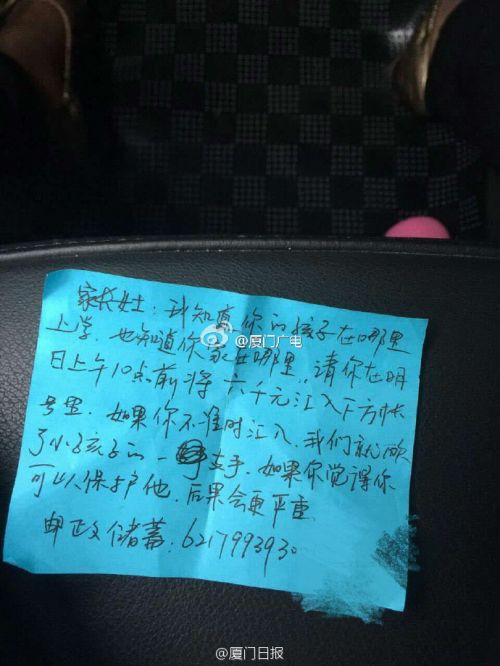 家长女士：我知道你的孩子在哪里
上学.也知道你家在哪里.请你在明
日上午10点前将六千元汇入下方帐
号里.如果你不准时汇入.我们就砍
了小孩子的一支手.如果你觉得你
可以保护他.后果会更严重
邮政储蓄：621799393
@厦门广电
@厦门日报